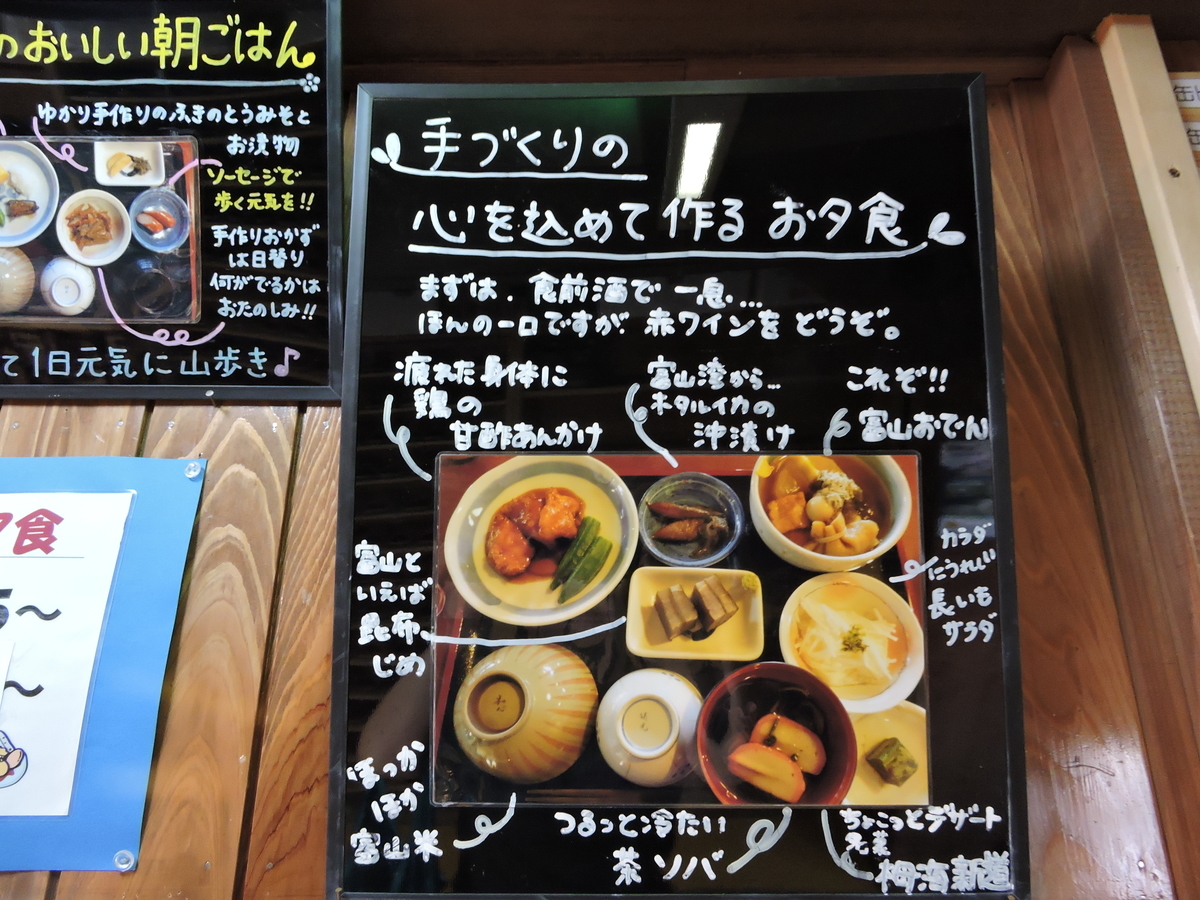 のおいしい朝ごはん
ゆかり手作りのふきのとうみそと
お漬物
ソーセージで
歩く元気を!!
手作りおかず
は日替り
何がでるかは
おたのしみ!!
て1日元気に山歩き♪
夕食
手づくりの
心を込めて作るお夕食
まずは、食前酒で一息...
ほんの一口ですが、赤ワインをどうぞ。
疲れた身体に
鶏の
甘酢あんかけ
富山湾から...
ホタルイカの
沖漬け
これぞ!!
富山おでん
富山と
いえば
昆布
じめ
カラダ
にうれしい
長いも
サラダ
ほっか
ほか
富山米
つるっと冷たい
茶ソバ
ちょこっとデザート
栂海新道